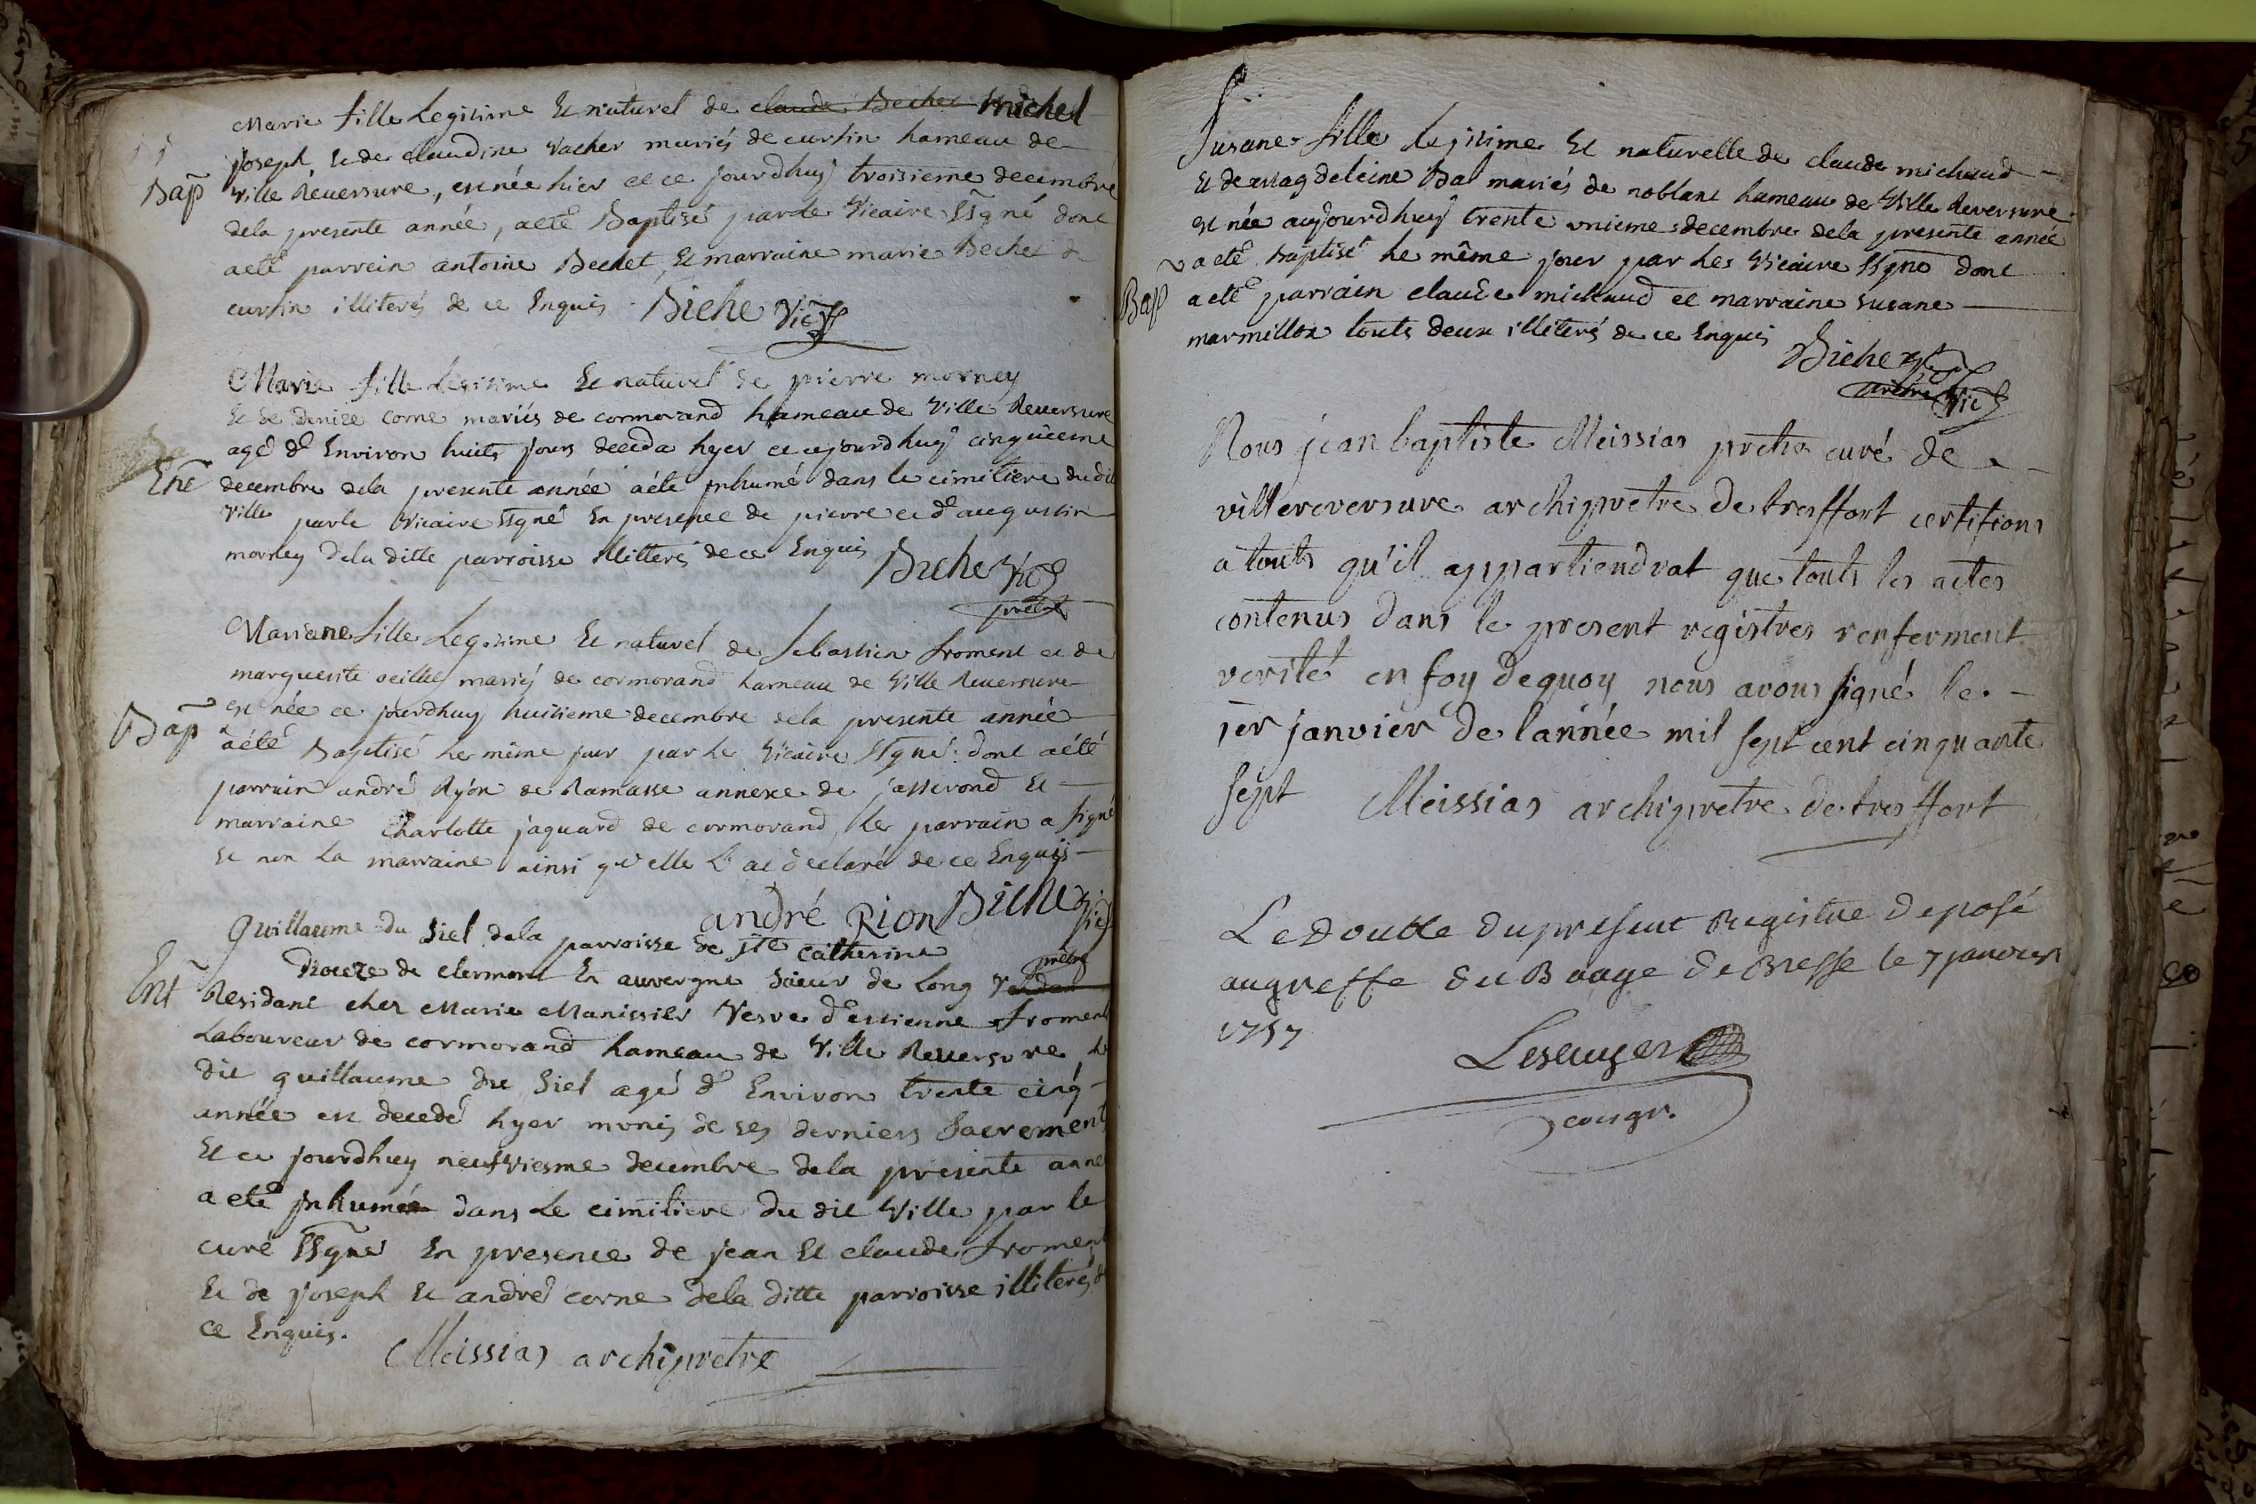 Marie fille Legitime Et naturel de claude Bechet michel
joseph Et de claudine vacher mariés de curtin hameau de
Bap
ville Reversure, est née hier et ce jourdhuy troisieme decembre
dela presente année, a eté Baptisé par le vicaire ssgné dont
a eté parrein antoine Bechet, Et marraine marie Bechet de
curtin illiterés de ce Enquis. Biche Vic
Marie fille Légitime Et naturel de pierre morney
Et de denize corne mariés de cormorand hameau de Ville Reversure
agé d' Environ huits jours deceda hyer et cejourdhuy cinquieme
Ent
decembre dela presente année a été jnhumé dans le cimitiere dudit
ville par le vicaire ssgné En presence de pierre et d'augustin
morney dela ditte parroisse illiterés de ce Enquis Biche Vic
pretre
Mariane fille Legitime Et naturel de sebastien froment et de
marguerite veille mariés de cormorand hameau de Ville Reversure
est née ce jourdhuy huitieme decembre dela presente année
Bap
a été Baptisé le même jour par le vicaire ssgné: dont a été
parrain andré Ryon de Ramasse annexe de jasserond Et
marraine charlotte jaquard de cormorand, le parrain a signé
Et non la marraine ainsi qu'elle L'at déclaré de ce Enquis
andré Rion Biche Vic
pretre
Guillaume du siel dela parroisse de ste catherine
Dioceze de clermont En auvergne sieur de long
Ent
Residant chez Marie Manissier Vesve d'estienne froment
Laboureur de cormorand hameau de Ville Reversure, le
dit guillaume du siel agé d' Environ trente cinq
année est decedé hyer monis de ses derniers sacrements
Et ce jourdhuy neufviesme decembre dela presente année
a eté jnhumé dans le cimitiere du dit Ville par le
curé ssgné En presence de jean Et claude froment
Et de joseph Et andré corne dela ditte parroisse illiterés de
ce Enquis.
Meissias archiprêtre
Susane fille Legitime Et naturelle de claude michaud
Et de magdeleine Bal mariés de noblans hameau de Ville Reversure
est née aujourdhuy trente unieme decembre dela presente année
a eté baptisé le même jour par les vicaire ssgné dont
Bap
a eté parrain claude michaud et marraine susane
marmillon touts deux illiterés de ce Enquis
Biche
pretre Vic
Nous jean baptiste Meissias prêtre curé de
villereversure archiprêtre de treffort certifions
a touts qu'il appartiendrat que touts les actes
contenus dans le present registres renferment
verité en foy dequoy nous avons signé le
1er janvier de l'année mil sept cent cinquante
sept Meissias archiprêtre de treffort
Le double du present Registre deposé
augreffe du Baage de Bresse le 7 janvier
1757